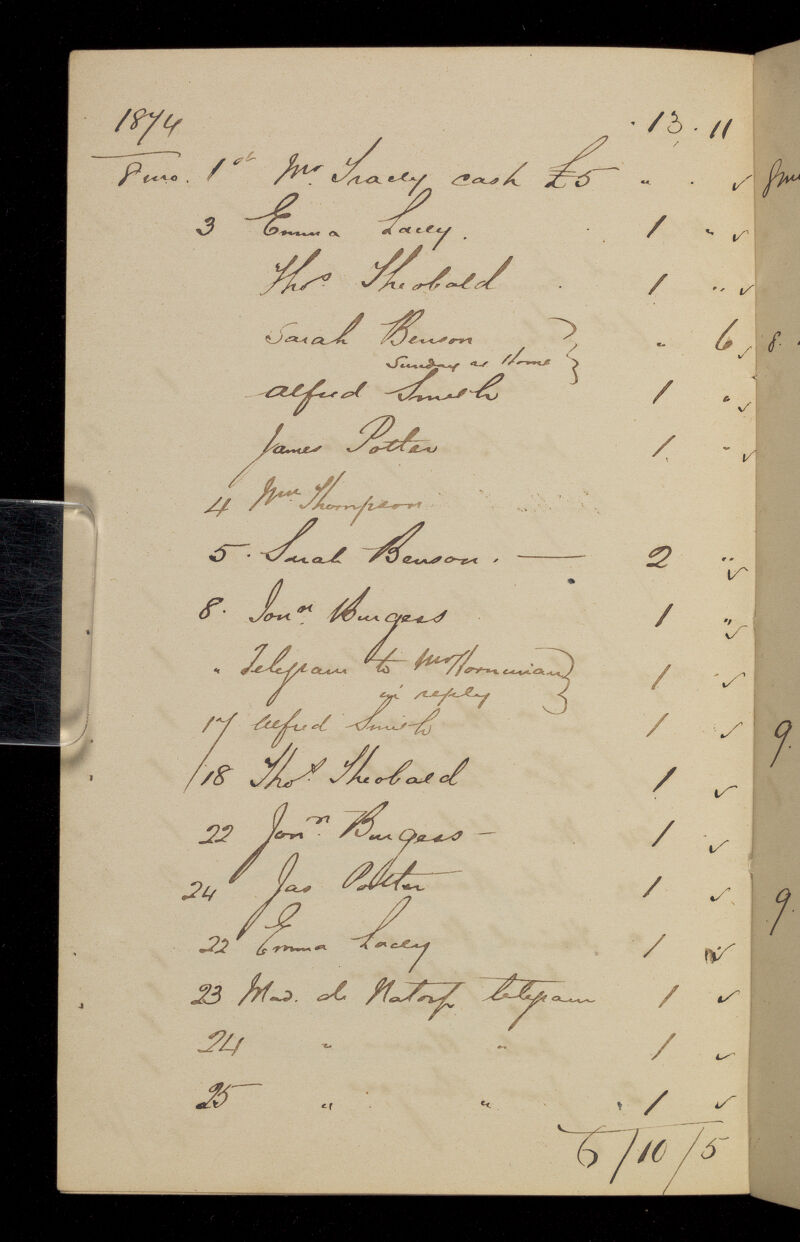 1874 · 13 · 11
8 mo. 1st Mr. Tracey cash £5 " · ✓
3 Emma Lacey. 1 " ✓
Thos. Theobald 1 " ✓
Sarah Benson " 6 ✓
Sunday at Home
Alfred Smith 1 " ✓
James Potter 1 " ✓
4 Wm Thompson
5 · Sarah Benson. — 2 " ✓
8 · Jonn. Burgess 1 " ✓
" Telegram to Mr Horniman 1 ✓
in reply
17 Alfred Smith 1 ✓
18 Thos. Theobald 1 ✓
22 Jonn. Burgess – 1 ✓
24 Jas Potter 1 ✓
22 Emma Lacey 1 ✓
23 Mad. de Natorp telegram 1 ✓
24 " " 1 ✓
25 " " 1 ✓
6/10/5
8 mo
8.
9.
9.